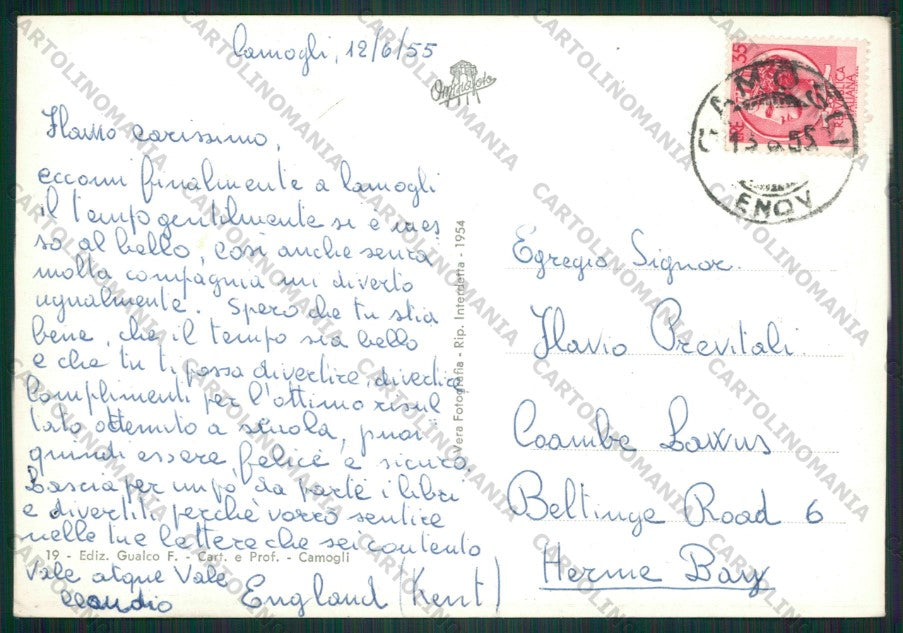 Camogli, 12/6/55
Omniafoto
Flavio carissimo,
eccomi finalmente a Camogli
il tempo gentilmente si è mes
so al bello, così anche senza
molta compagnia mi diverto
ugualmente. Spero che tu stia
bene, che il tempo sia bello
e che tu ti possa divertire, divertir
Complimenti per l'ottimo risul
tato ottenuto a scuola, puoi
quindi essere felice e sicuro.
Lascia per un po' da parte i libri
e divertiti, perchè vorrò sentire
nelle tue lettere che sei contento
19 - Ediz. Gualco F. - Cart. e Prof. - Camogli
Vale atque Vale
Claudio
Vera Fotografia - Rip. Interdetta - 1954
35
LIRE
REPVBBLICA
ITALIANA
CAMOGLI
13 6 55
GENOV
Egregio Signor
Flavio Previtali
Coambe Lawus
Beltinge Road 6
Herne Bay
England (Kent)
CARTOLINOMANIA